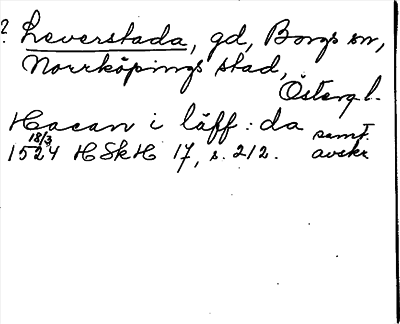 ? Leverstada, gd, Borgs sn,
Norrköpings stad,
Östergl.
Hacan i läff : da samt.
18/3
1524 HSkH 17, s. 212. avskr